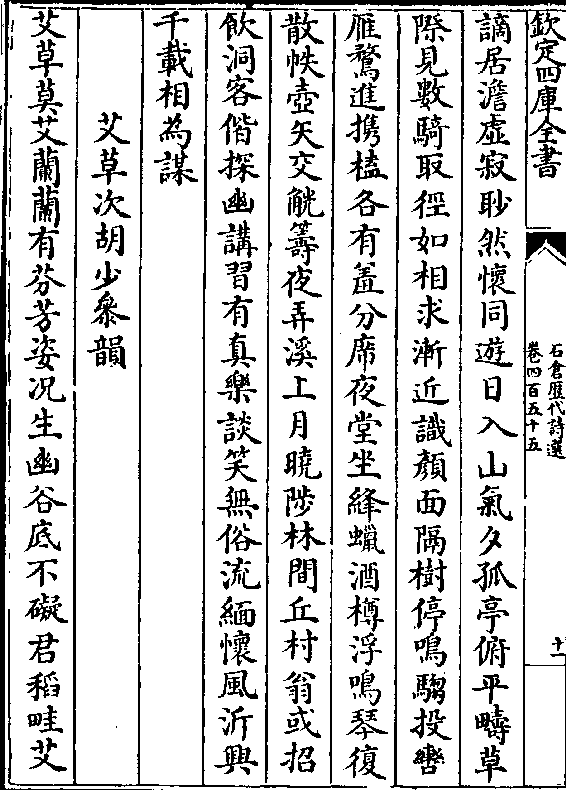 欽定四庫全書
石倉歷代詩選
卷四百五十五
十一
謫居澹虚寂眇然懷同遊日入山氣夕孤亭俯平疇草
際見數騎取徑如相求漸近識顔面隔樹停鳴騶投轡
雁鶩進携榼各有羞分席夜堂坐絳蠟酒樽浮鳴琴復
散帙壺矢交觥籌夜弄溪上月曉陟林間丘村翁或招
飲洞客偕探幽講習有真樂談笑無俗流緬懷風沂興
千載相為謀
艾草次胡少叅韻
艾草莫艾蘭蘭有芬芳姿况生幽谷底不礙君稻畦艾